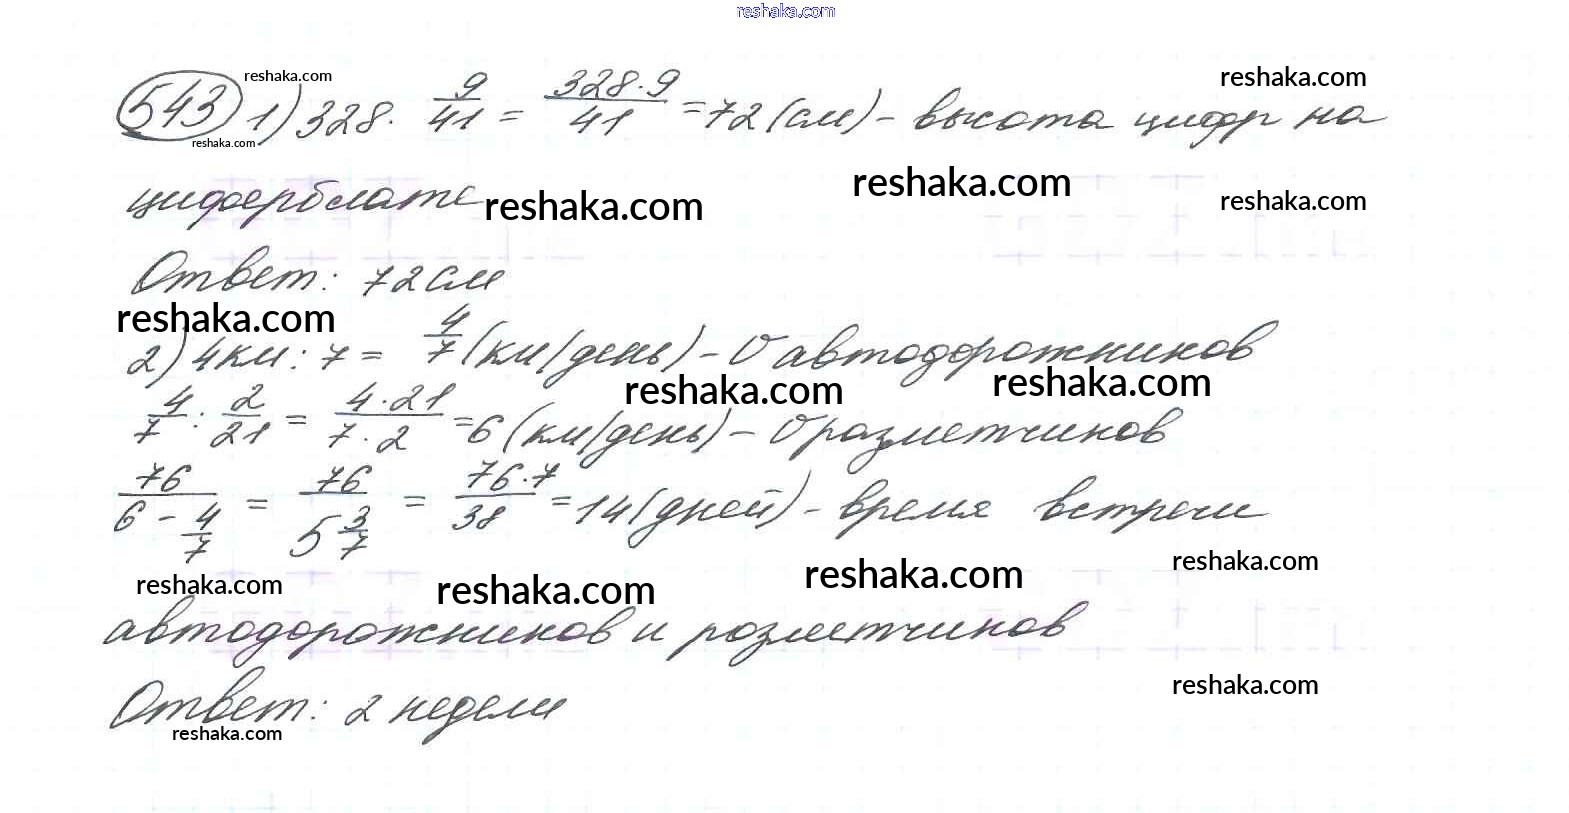 reshaka.com
reshaka.com
reshaka.com
543 1) 328 · 9/41 = 328·9/41 = 72 (см) - высота цифр на
reshaka.com
reshaka.com
reshaka.com
циферблате reshaka.com
Ответ: 72 см
reshaka.com
2) 4км : 7 = 4/7 (км/день) - υ автодорожников
reshaka.com reshaka.com
4/7 : 2/21 = 4·21/7·2 = 6 (км/день) - υ разметчиков
76/(6 - 4/7) = 76/(5 3/7) = 76·7/38 = 14 (дней) - время встречи
reshaka.com reshaka.com reshaka.com reshaka.com
автодорожников и розметчиков
reshaka.com
Ответ: 2 недели
reshaka.com